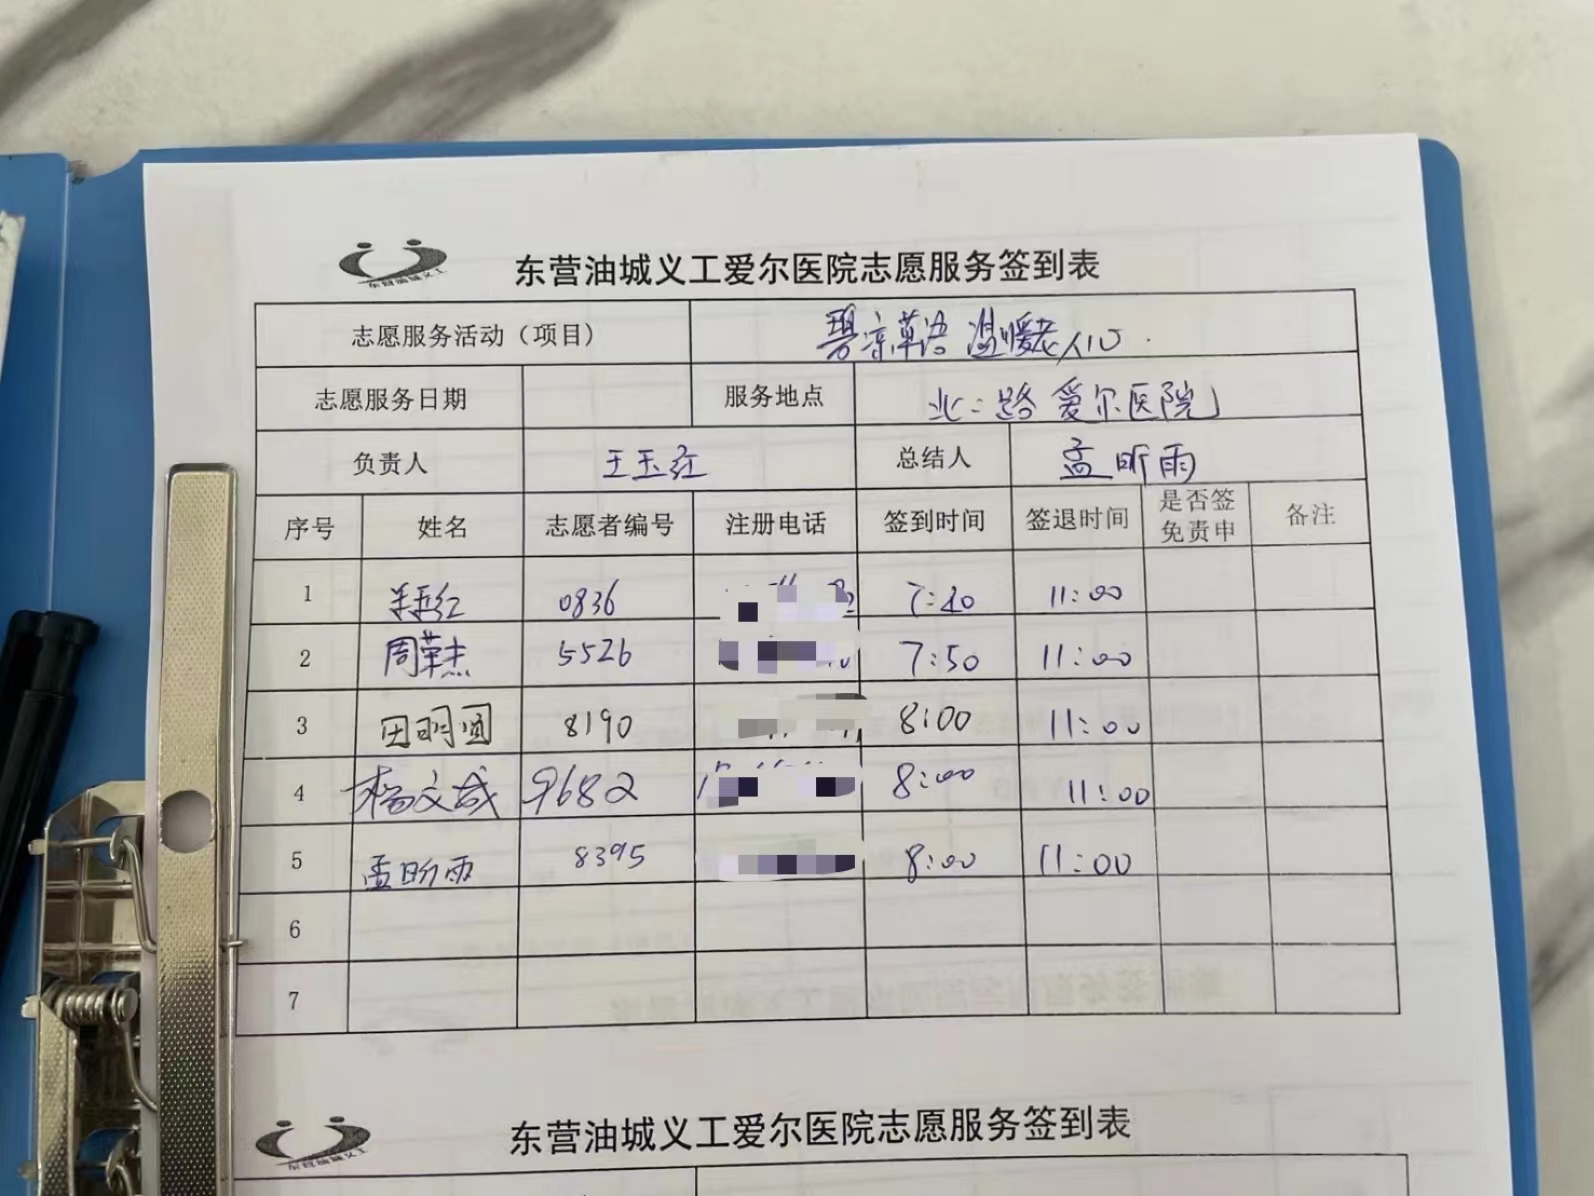 东营油城义工
东营油城义工爱尔医院志愿服务签到表
志愿服务活动（项目） 温暖老人心
志愿服务日期 服务地点 北二路 爱尔医院
负责人 王玉红 总结人 孟昕雨
序号 姓名 志愿者编号 注册电话 签到时间 签退时间 是否签免责申 备注
1 0836 7:40 11:00
2 周 杰 5526 7:50 11:00
3 田明圆 8190 8:00 11:00
4 杨文成 9682 8:00 11:00
5 孟昕雨 8395 8:00 11:00
6
7
东营油城义工
东营油城义工爱尔医院志愿服务签到表